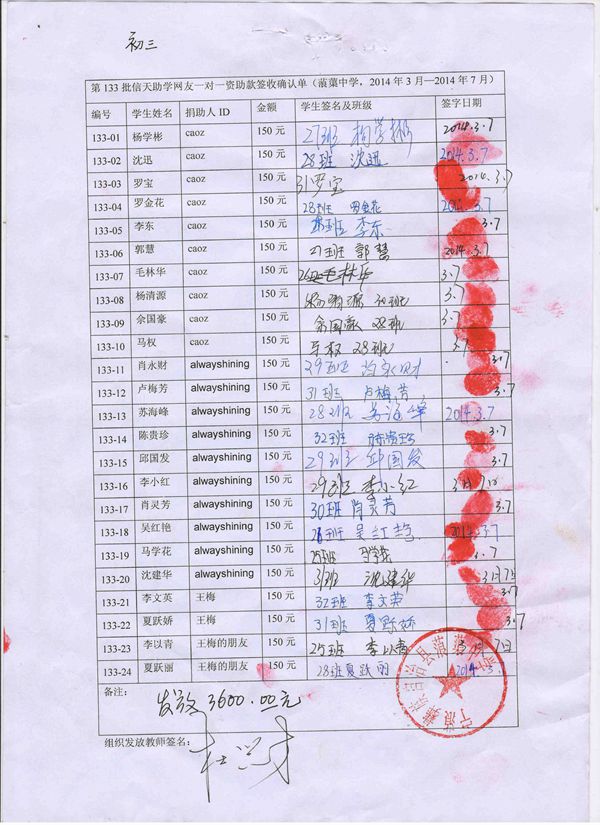 初三
第 133 批信天助学网友一对一资助款签收确认单（蕞蕖中学，2014 年 3 月—2014 年 7 月）
编号 学生姓名 捐助人 ID 金额 学生签名及班级 签字日期
133-01 杨学彬 caoz 150 元 27班 杨学彬 2014.3.7
133-02 沈迅 caoz 150 元 28班 沈迅 2014.3.7
133-03 罗宝 caoz 150 元 31罗宝 2014.3.7
133-04 罗金花 caoz 150 元 28班 罗金花 2014.3.7
133-05 李东 caoz 150 元 李东 3.7
133-06 郭慧 caoz 150 元 27班 郭慧 2014.3.7
133-07 毛林华 caoz 150 元 毛林华 3.7
133-08 杨清源 caoz 150 元 3.7
133-09 余国豪 caoz 150 元 余国豪 28班 3.7
133-10 马权 caoz 150 元 马权 28班 3.7
133-11 肖永财 alwayshining 150 元 29班 肖永财 3.7
133-12 卢梅芳 alwayshining 150 元 31班 卢梅芳 3.7
133-13 苏海峰 alwayshining 150 元 28班 苏海峰 2014.3.7
133-14 陈贵珍 alwayshining 150 元 32班 陈贵珍 3.7
133-15 邱国发 alwayshining 150 元 29班 邱国发 3.7
133-16 李小红 alwayshining 150 元 29班 李小红 3月7日
133-17 肖灵芳 alwayshining 150 元 30班 肖灵芳 3.7
133-18 吴红艳 alwayshining 150 元 吴红艳 2014.3.7
133-19 马学花 alwayshining 150 元 25班 马学花 3.7
133-20 沈建华 alwayshining 150 元 31班 沈建华 3月7日
133-21 李文英 王梅 150 元 32班 李文英 3.7
133-22 夏跃娇 王梅 150 元 31班 夏跃娇 3.7
133-23 李以青 王梅的朋友 150 元 25班 李以青 3月7日
133-24 夏跃丽 王梅的朋友 150 元 28班夏跃丽 2014.3.7
备注：
发放3600.00元
组织发放教师签名：